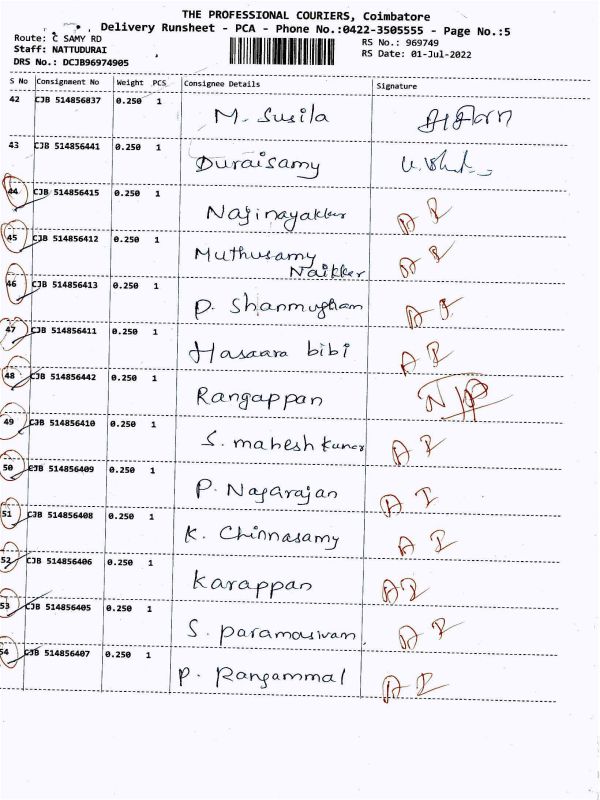 THE PROFESSIONAL COURIERS, Coimbatore
Delivery Runsheet - PCA - Phone No.:0422-3505555 - Page No.:5
Route: C SAMY RD
RS No.: 969749
Staff: NATTUDURAI
RS Date: 01-Jul-2022
DRS No.: DCJB96974905
S No Consignment No Weight PCS Consignee Details Signature
42 CJB 514856837 0.250 1 M. Susila
43 CJB 514856441 0.250 1 Duraisamy
44 CJB 514856415 0.250 1 Najinayakkar A I
45 CJB 514856412 0.250 1 Muthusamy A I
Naikker
46 CJB 514856413 0.250 1 P. Shanmugham A I
47 CJB 514856411 0.250 1 Hasaara bibi A I
48 CJB 514856442 0.250 1 Rangappan
49 CJB 514856410 0.250 1 S. mahesh kumar A I
50 CJB 514856409 0.250 1 P. Nagarajan A I
51 CJB 514856408 0.250 1 K. Chinnasamy A I
52 CJB 514856406 0.250 1 Karappan A I
53 CJB 514856405 0.250 1 S. paramasivam A I
54 CJB 514856407 0.250 1 P. Rangammal A I